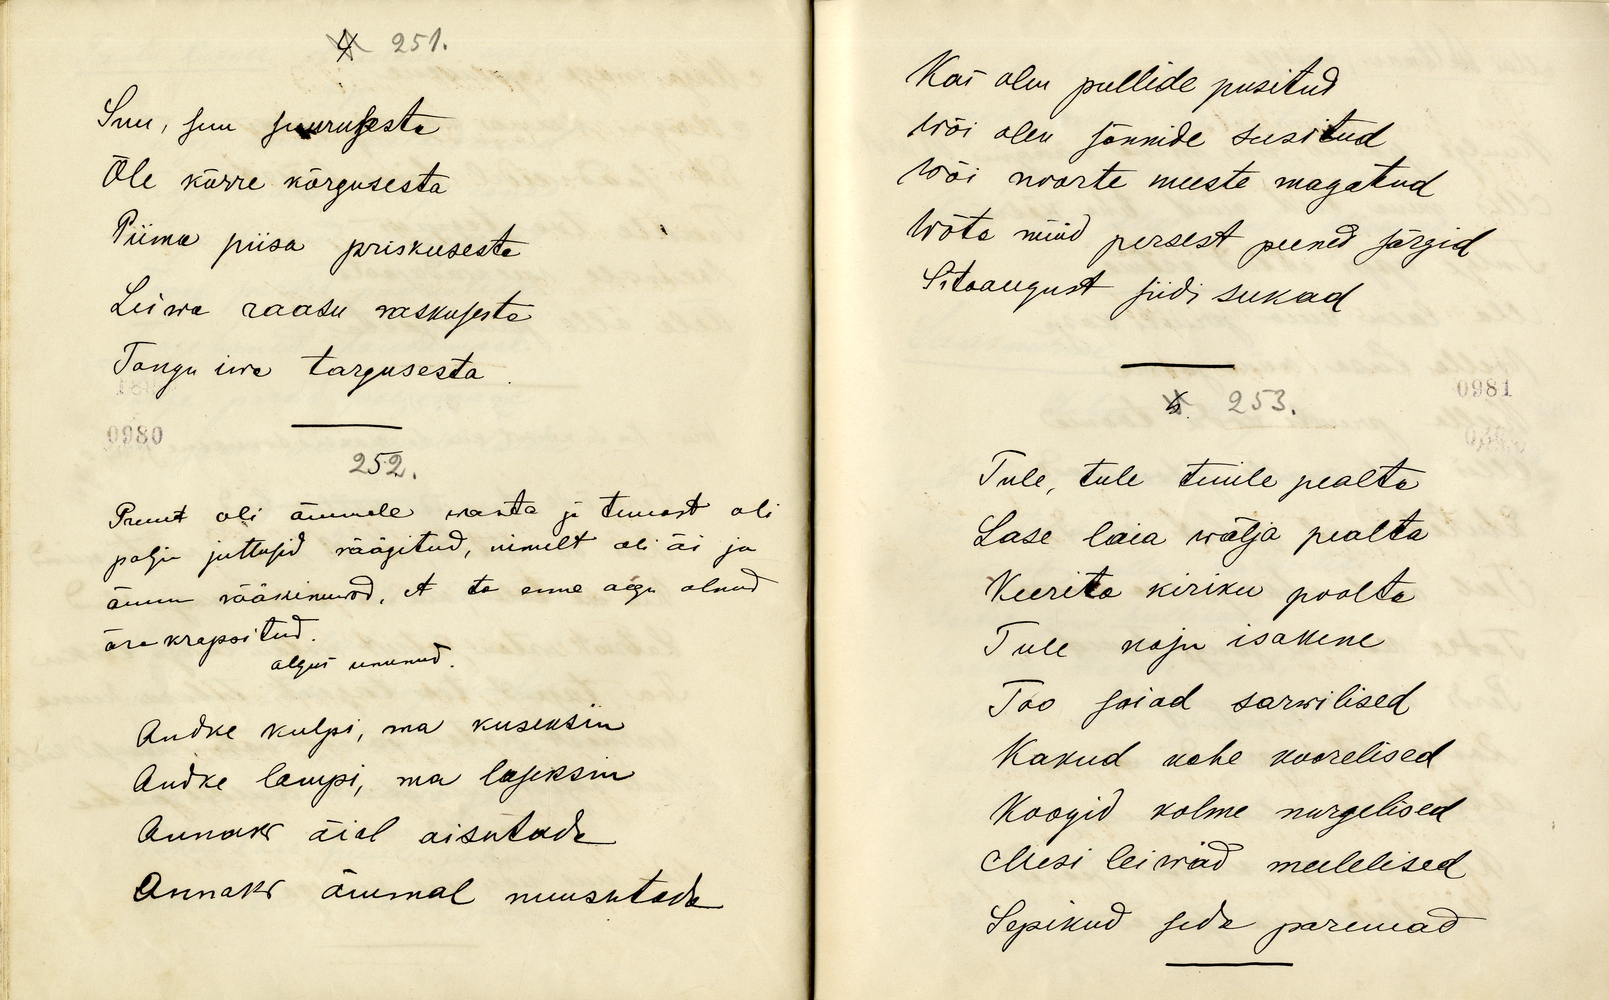 251.
Suu, suu suurusesta
Õle kõrre kõrgusesta
Piima piisa priskusesta
Leiwa raasu raskusesta
Tangu iwa targusesta
0980
252.
Pruut oli ämmale wasta ja temast oli
palju juttusid räägitud, nimelt oli äi ja
ämm rääkinuwad, et ta enne aega olnud
ära krapsitud.
algus ununud.
Andke kulpi, ma kuseksin
Andke lampi, ma laseksin
Annaks äial aisutada
Annaks ämmal nuusutada
Kas olen pullide pusitud
Wõi olen jõnnide susitud
Wõi noorte meeste magatud
Wõta nüüd persest peened särgid
Sitaaugust siidi sukad
0981
5. 253.
Tule, tule tuule pealta
Lase laia wälja pealta
Keerita kiriku poolta
Tule koju isakene
Too saiad sarwilised
Kakud kahe koorelised
Koogid kolme nurgelised
Mesi leiwad meelelised
Sepikud seda paremad